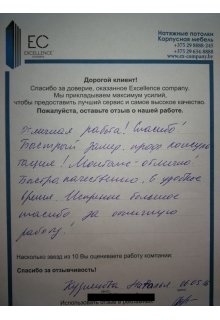 EC
EXCELLENCE
Натяжные потолки
Корпусная мебель
+375 29 6888-243
www.ex-company.by
Дорогой клиент!
Спасибо за доверие, оказанное Excellence company.
Мы прикладываем максимум усилий,
чтобы предоставить лучший сервис и самое высокое качество.
Пожалуйста, оставьте отзыв о нашей работе.
Отличная работа! Спасибо!
Быстрый замер, проф. консуль
тация! Монтаж - отлично!
Быстро, качественно, в удобное
время. Искренне большое
спасибо за отличную
работу!
Насколько звезд из 10 Вы оцениваете работу компании:
Спасибо за отзывчивость!
Наталья